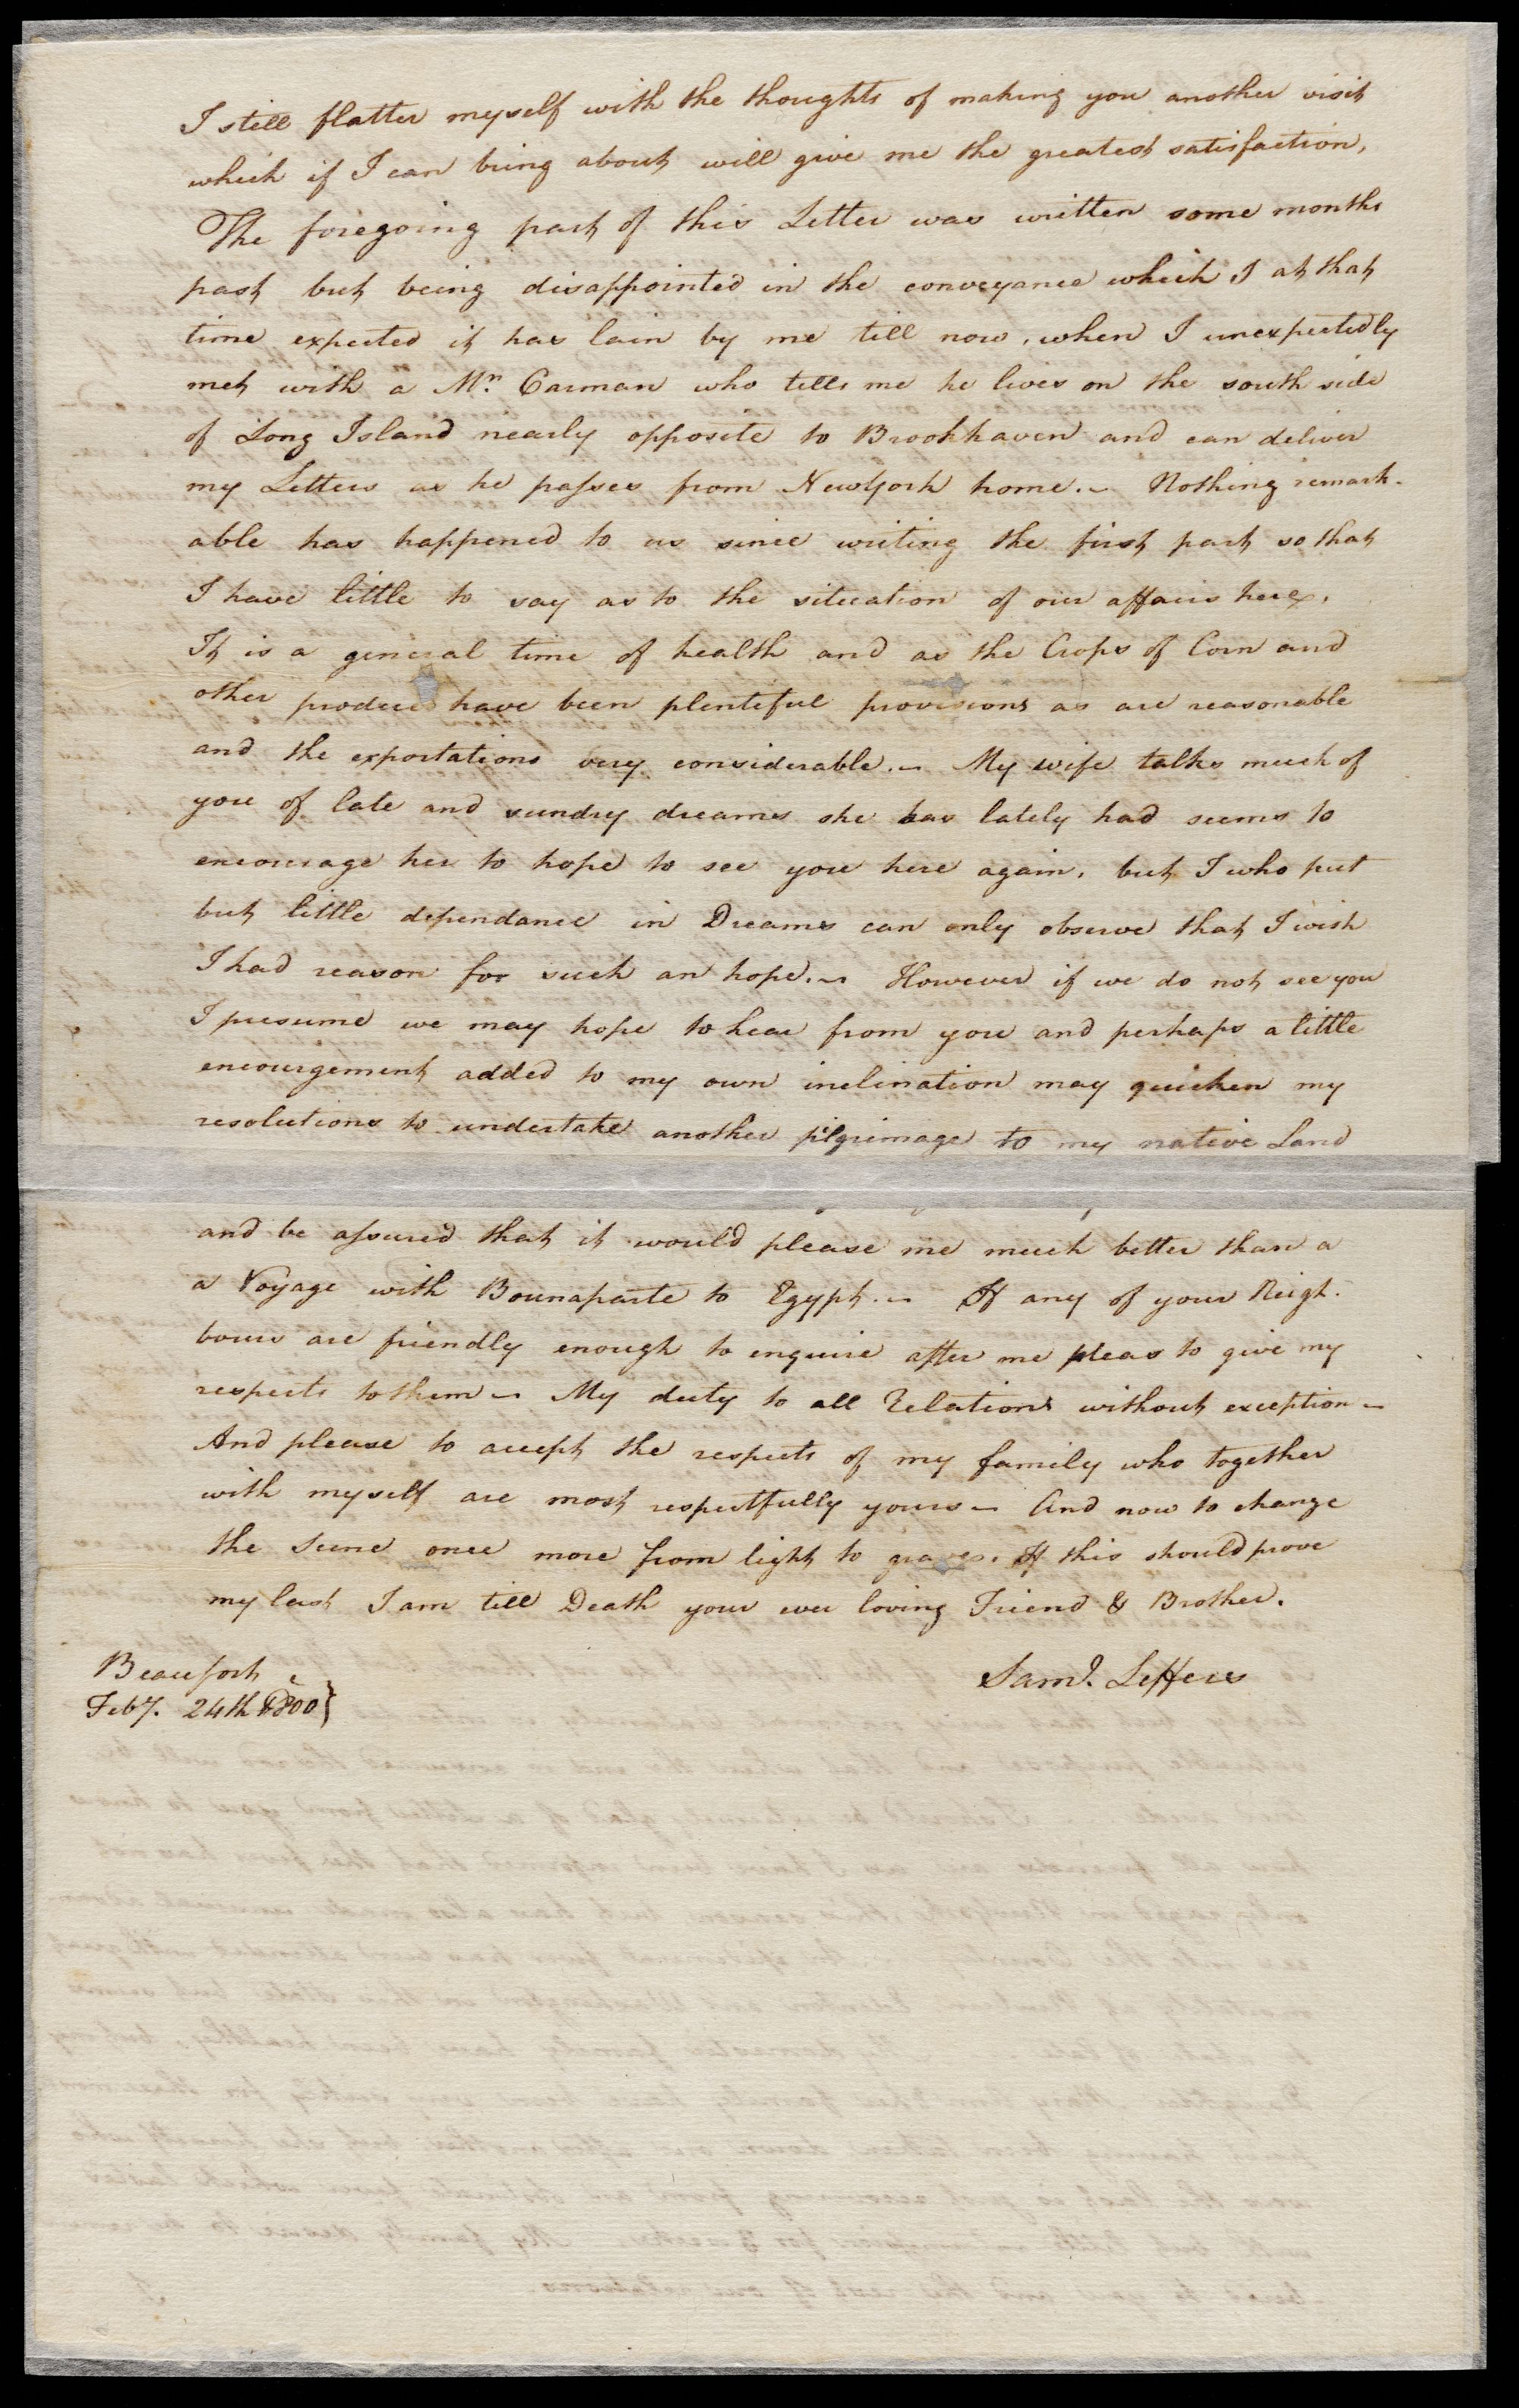 I still flatter myself with the thoughts of making you another visit
which if I can bring about will give me the greatest satisfaction,
The foregoing part of this Letter was written some months
past but being disappointed in the conveyance which I at that
time expected it has lain by me till now, when I unexpectedly
met with a Mr. Carman who tells me he lives on the south side
of Long Island nearly opposite to Brookhaven and can deliver
my Letters as he passes from Newyork home. ~ Nothing remark-
able has happened to us since writing the first part so that
I have little to say as to the situation of our affairs here.
It is a general time of health and as the Crops of Corn and
other produce have been plentiful provisions as are reasonable
and the exportations very considerable. ~ My wife talks much of
you of late and sundry dreams she has lately had seems to
encourage her to hope to see you here again, but I who put
but little dependance in Dreams can only observe that I wish
I had reason for such an hope. ~ However if we do not see you
I presume we may hope to hear from you and perhaps a little
encourgement added to my own inclination may quicken my
resolutions to undertake another pilgrimage to my native Land
and be assured that it would please me much better than a
a Voyage with Bounaparte to Egypt. ~ If any of your Neigh-
bours are friendly enough to enquire after me pleas to give my
respects to them ~ My duty to all Relations without exception ~
And please to accept the respects of my family who together
with myself are most respectfully yours ~ And now to change
the Scene once more from light to graver. If this should prove
my last I am till Death your ever loving Friend & Brother.
Saml. Leffers
Beaufort
Feby. 24th 1800 }